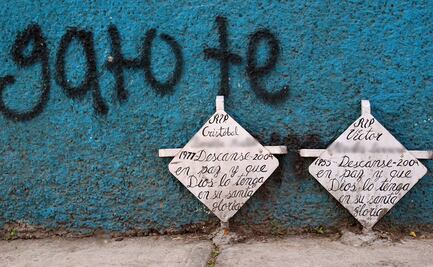 garote
RIP
Cristobal
1977-Descanse-2004
en paz y que
Dios lo tenga
en su santa
gloria
RIP
Victor
1955-Descanse-2004
en paz y que
Dios lo tenga
en su santa
gloria